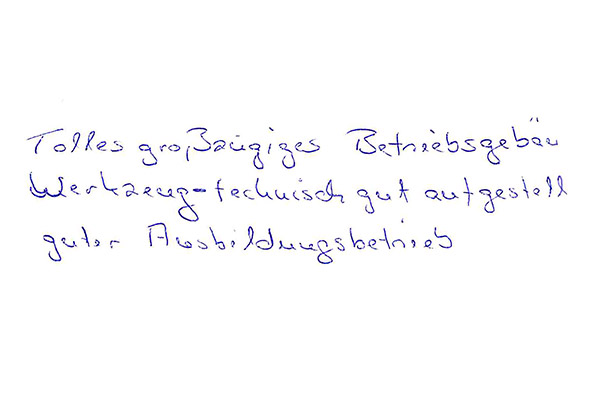 Tolles großzügiges Betriebsgebäu
Werkzeug-technisch gut aufgestell
guter Ausbildungsbetrieb